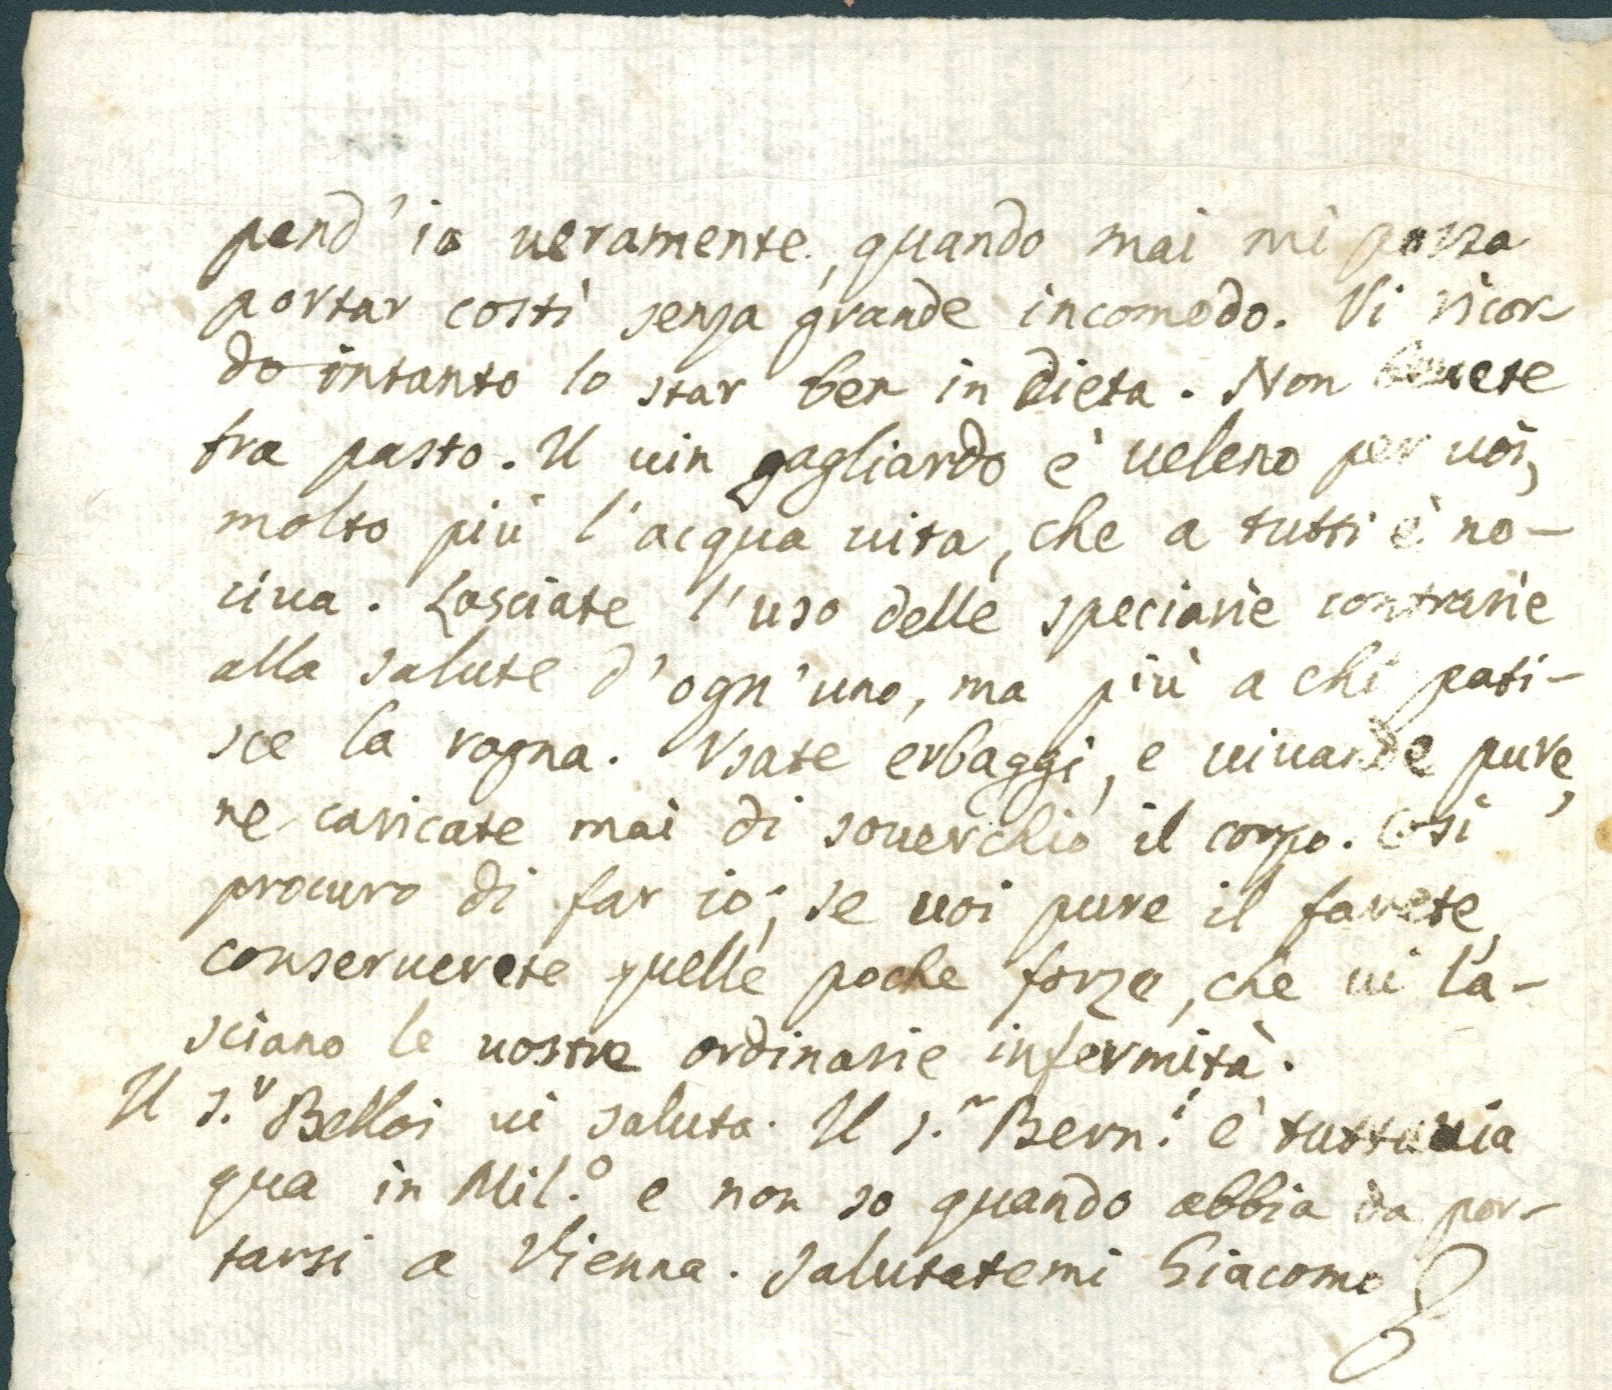 pend'io ueramente, quando mai mi possa
portar costì senza grande incomodo. Vi ricor-
do intanto lo star ben in dieta. Non beuete
fra pasto. Il uin gagliardo è ueleno per uoi,
molto più l'acqua uita, che a tutti è no-
ciua. Lasciate l'uso delle speciarie contrarie
alla salute d'ogn'uno, ma più a chi pati-
sce la rogna. Vsate erbaggi, e uiuande pure,
ne caricate mai di souerchio il corpo. Così
procuro di far io; se uoi pure il farete,
conseruerete quelle poche forze, che ui la-
sciano le uostre ordinarie infermità.
Il S.r Belloi ui saluta. Il S.r Bern.i è tuttauia
qua in Mil.o e non so quando abbia da por-
tarsi a Vienna. Salutatemi Giacomo